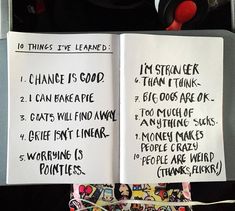 10 THINGS I'VE LEARNED:
1. CHANGE IS GOOD.
2. I CAN BAKE A PIE
3. CATS WILL FIND A WAY.
4. GRIEF ISN'T LINEAR.
5. WORRYING IS
POINTLESS.
6. I'M STRONGER
THAN I THINK.
7. BIG DOGS ARE OK.
8. TOO MUCH OF
ANYTHING SUCKS.
9. MONEY MAKES
PEOPLE CRAZY
10. PEOPLE ARE WEIRD
(THANKS, FLICKR!)